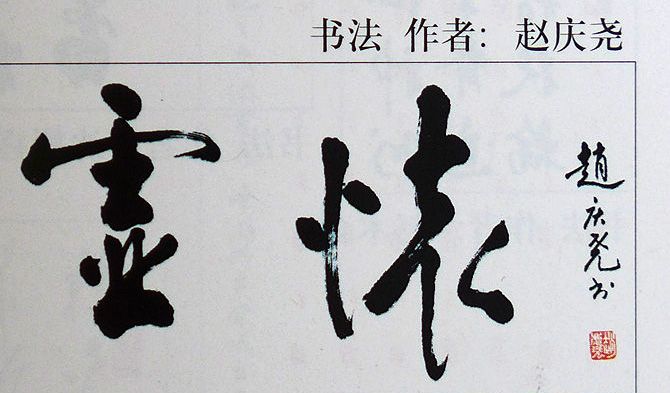 书法 作者：赵庆尧
虚懷
趙庆尧书